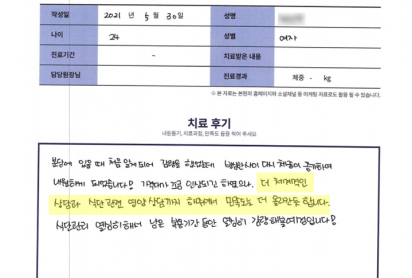 작성일 2021 년 5 월 30 일 성명
나이 24 성별 여자
진료기간 - 치료받은 내용
담당원장님 진료경과 체중 - kg
※ 본 자료는 본원의 홈페이지와 소셜채널 등 마케팅 자료로도 활용 될 수 있습니다.
치료 후기
내원동기, 치료과정, 만족도 등을 적어 주세요.
분당에 있을 때 처음 알게되어 감량을 했었는데 방심한사이 다시 체중이 증가하여
내원하게 되었습니다! 가격대가 조금 인상되긴 하였으나, 더 체계적인
상담과 식단관련 영양 상담까지 해주셔서 만족도는 더 올라간듯 합니다.
식단관리 열심히해서 남은 복용기간 동안 열심히 감량해볼예정입니다!